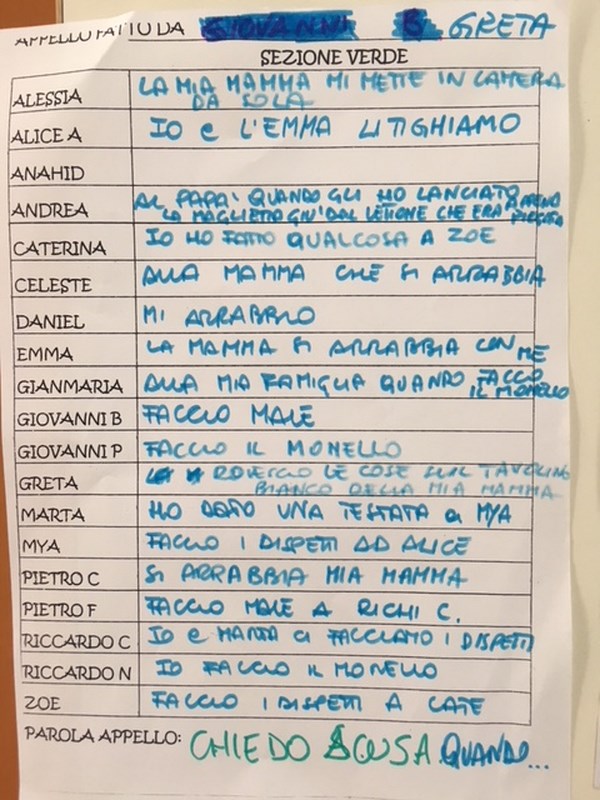 APPELLO FATTO DA GIOVANNI B GRETA
SEZIONE VERDE
ALESSIA LA MIA MAMMA MI METTE IN CAMERA
DA SOLA
ALICE A IO e L'EMMA LITIGHIAMO
ANAHID
ANDREA AL PAPA' QUANDO GLI HO LANCIATO
LA MAGLIETTA GIU' DAL LETTONE CHE ERA
CATERINA IO HO FATTO QUALCOSA A ZOE
CELESTE ALLA MAMMA CHE SI ARRABBIA
DANIEL MI ARRABBIO
EMMA LA MAMMA SI ARRABBIA CON ME
GIANMARIA ALLA MIA FAMIGLIA QUANDO FACCIO
IL MONELLO
GIOVANNI B FACCIO MALE
GIOVANNI P FACCIO IL MONELLO
GRETA ROVESCIO LE COSE SUL TAVOLINO
BIANCO DELLA MIA MAMMA
MARTA HO DATO UNA TESTATA a MYA
MYA FACCIO I DISPETTI AD ALICE
PIETRO C SI ARRABBIA MIA MAMMA
PIETRO F FACCIO MALE A RICHI C.
RICCARDO C IO e MARTA CI FACCIAMO I DISPETTI
RICCARDO N IO FACCIO IL MONELLO
ZOE FACCIO I DISPETTI A CATE
PAROLA APPELLO: CHIEDO SCUSA QUANDO...